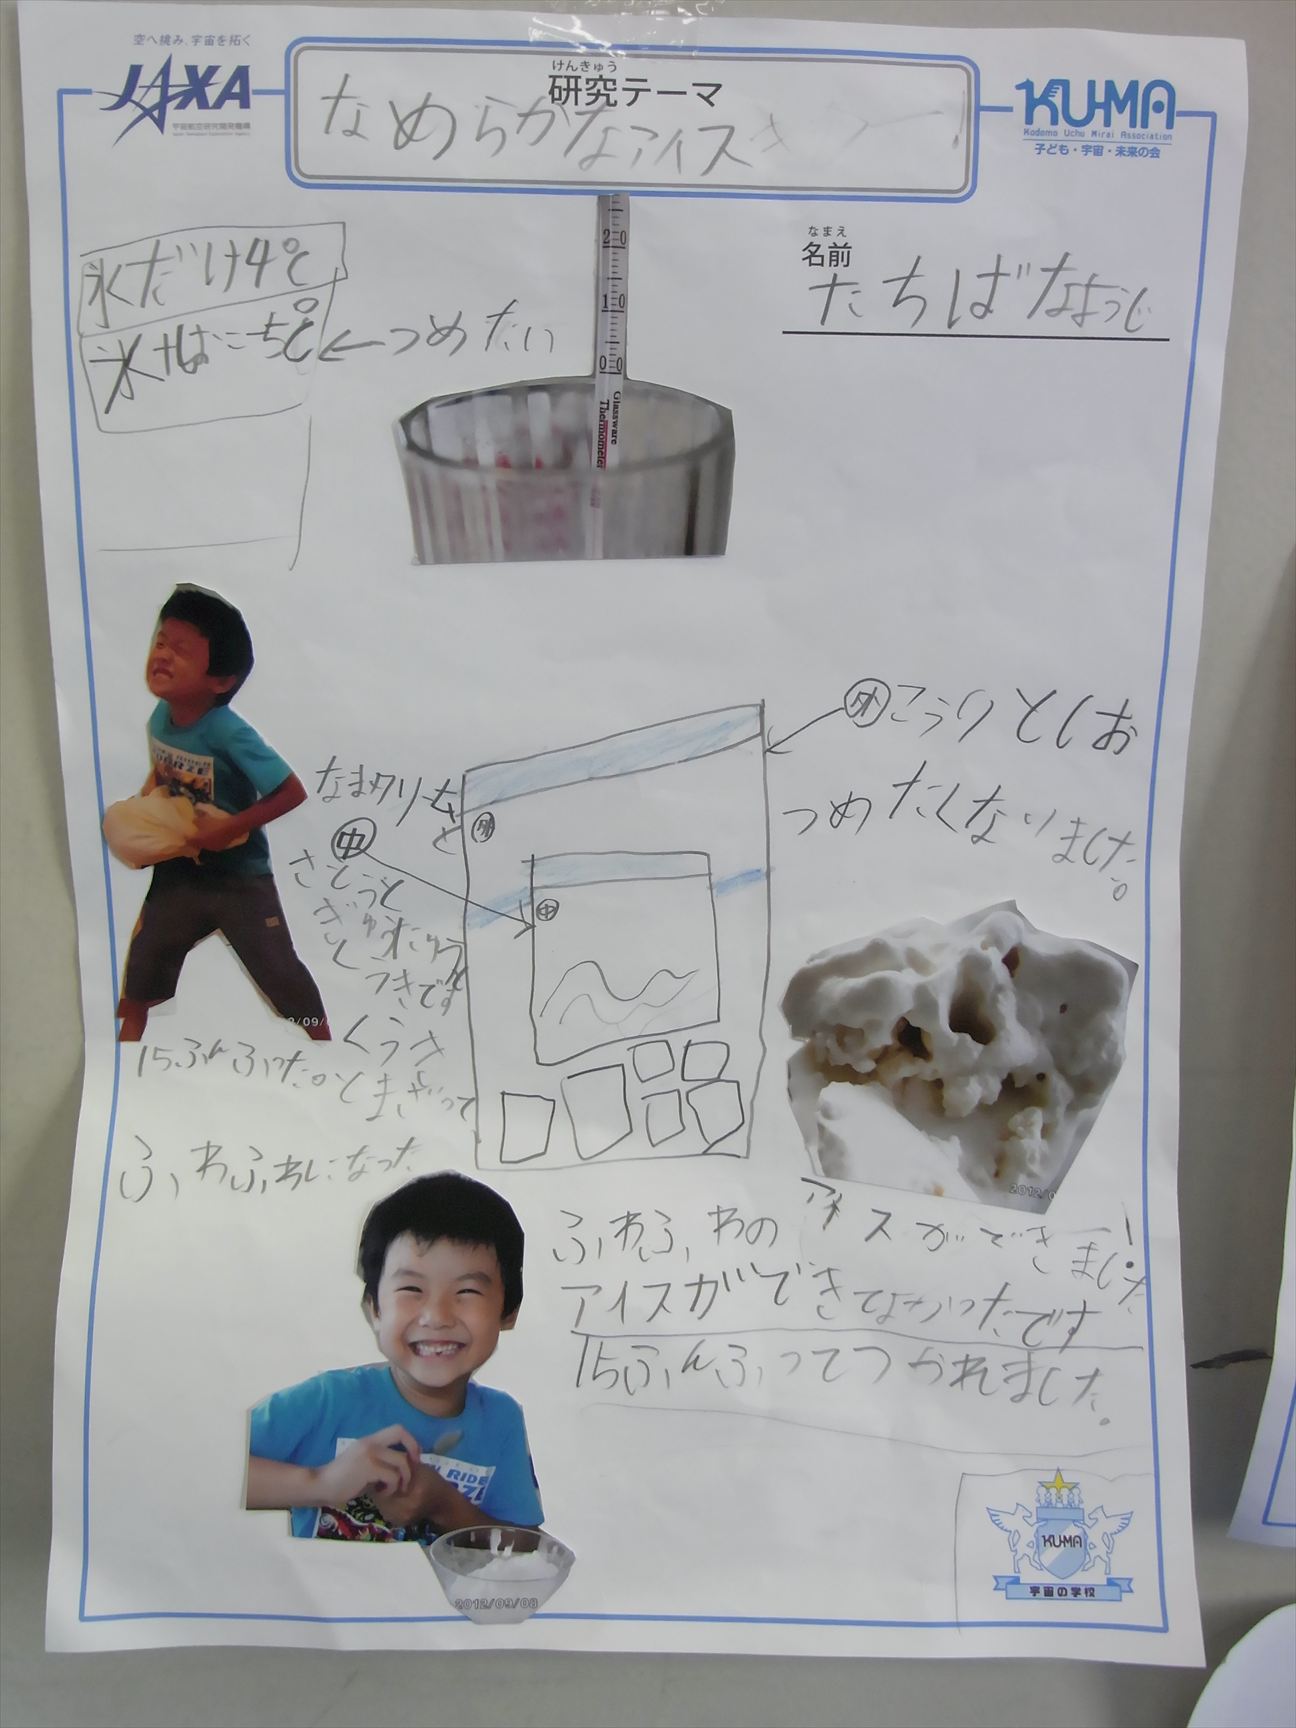 空へ挑み、宇宙を拓く
JAXA
宇宙航空研究開発機構
Japan Aerospace Exploration Agency
けんきゅう
研究テーマ
なめらかなアイス
KU-MA
Kodomo Uchu Mirai Association
子ども・宇宙・未来の会
なまえ
名前
たちばなようじ
氷だけ4℃
←つめたい
20
10
00
Glassware
Thermometer
外こうりとしお
つめたくなりました。
なまクリーむ
と
中
さとうと
ぎゅうにゅう
くうきです
くうき
とまざって
外
中
15ふんふった。
ふわふわになった
ふわふわのアイスができました!
アイスができてよかったです
15ふんふってつかれました。
2012/0
2012/09/08
KU-MA
宇宙の学校